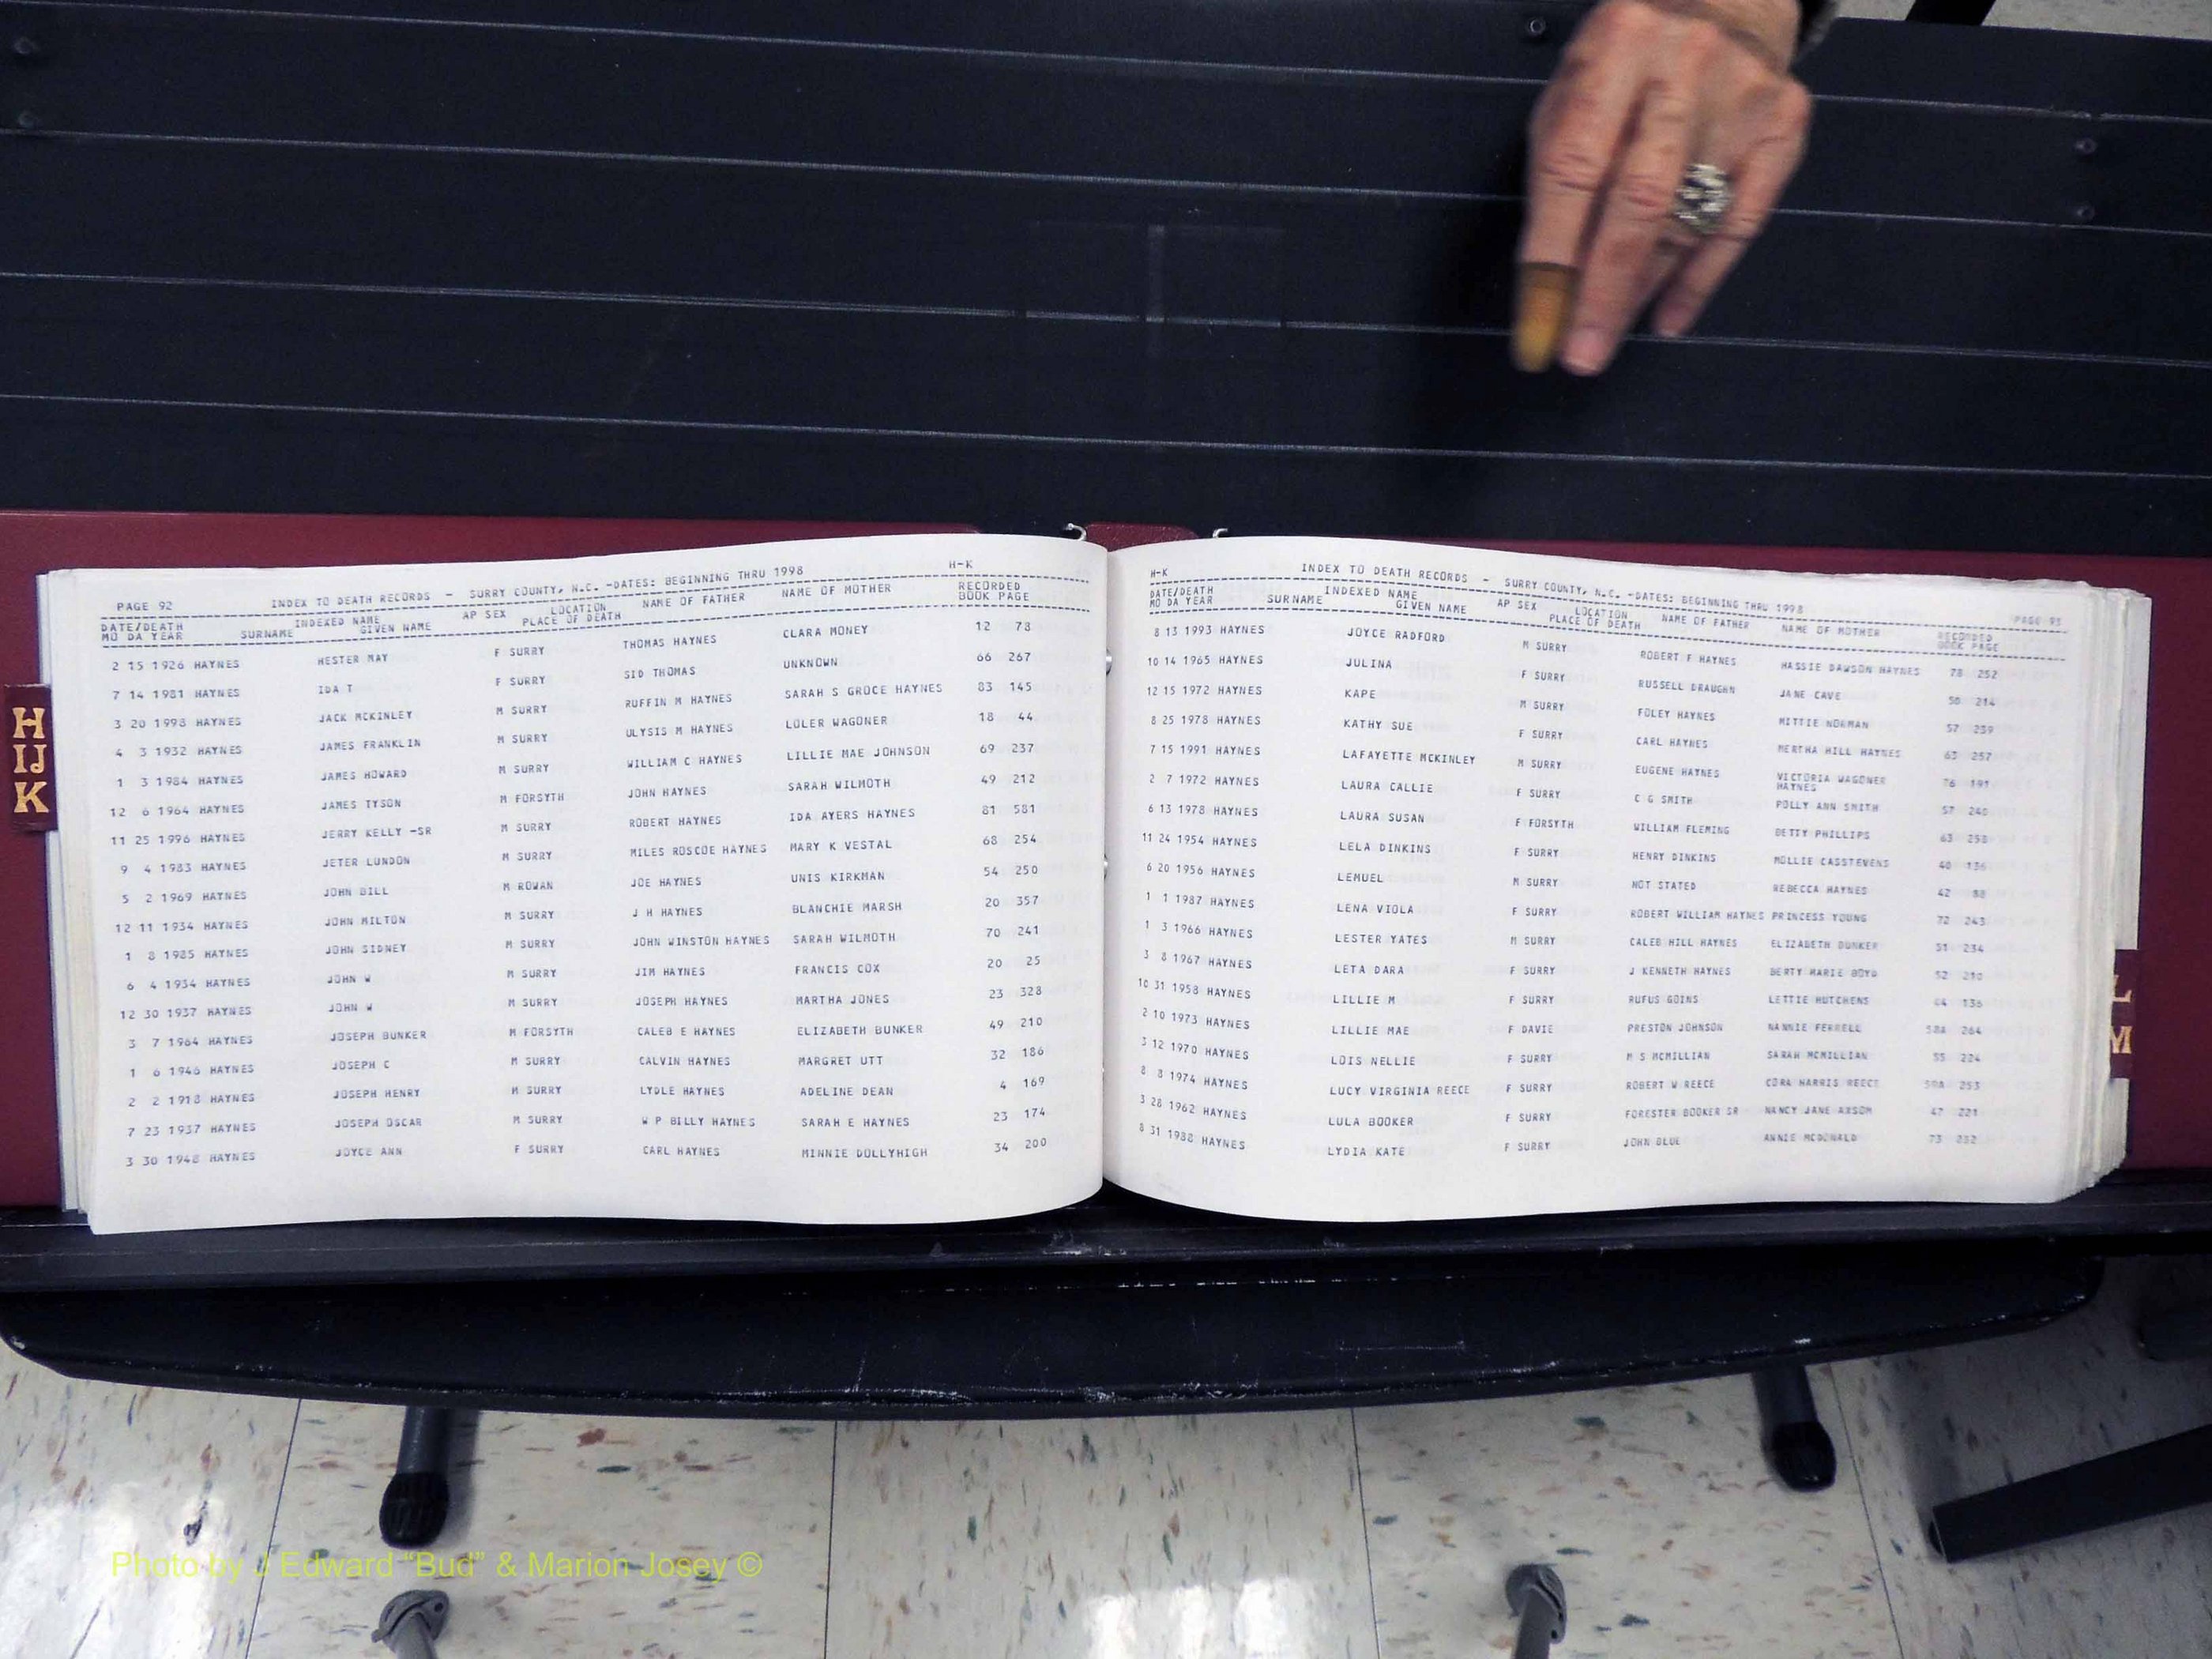 PAGE 92 INDEX TO DEATH RECORDS - SURRY COUNTY, N.C. -DATES: BEGINNING THRU 1998 H-K
DATE/DEATH INDEXED NAME LOCATION NAME OF FATHER NAME OF MOTHER RECORDED
MO DA YEAR SURNAME GIVEN NAME AP SEX PLACE OF DEATH BOOK PAGE
2 15 1926 HAYNES HESTER MAY F SURRY THOMAS HAYNES CLARA MONEY 12 78
7 14 1981 HAYNES IDA T F SURRY SID THOMAS UNKNOWN 66 267
3 20 1998 HAYNES JACK MCKINLEY M SURRY RUFFIN M HAYNES SARAH S GROCE HAYNES 83 145
4 3 1932 HAYNES JAMES FRANKLIN M SURRY ULYSIS M HAYNES LULER WAGONER 18 44
1 3 1984 HAYNES JAMES HOWARD M SURRY WILLIAM C HAYNES LILLIE MAE JOHNSON 69 237
12 6 1964 HAYNES JAMES TYSON M FORSYTH JOHN HAYNES SARAH WILMOTH 49 212
11 25 1996 HAYNES JERRY KELLY -SR M SURRY ROBERT HAYNES IDA AYERS HAYNES 81 581
9 4 1983 HAYNES JETER LUNDON M SURRY MILES ROSCOE HAYNES MARY K VESTAL 68 254
5 2 1969 HAYNES JOHN BILL M ROWAN JOE HAYNES UNIS KIRKMAN 54 250
12 11 1934 HAYNES JOHN MILTON M SURRY J H HAYNES BLANCHIE MARSH 20 357
1 8 1985 HAYNES JOHN SIDNEY M SURRY JOHN WINSTON HAYNES SARAH WILMOTH 70 241
6 4 1934 HAYNES JOHN W M SURRY JIM HAYNES FRANCIS COX 20 25
12 30 1937 HAYNES JOHN W M SURRY JOSEPH HAYNES MARTHA JONES 23 328
3 7 1964 HAYNES JOSEPH BUNKER M FORSYTH CALEB E HAYNES ELIZABETH BUNKER 49 210
1 6 1946 HAYNES JOSEPH C M SURRY CALVIN HAYNES MARGRET UTT 32 186
2 2 1918 HAYNES JOSEPH HENRY M SURRY LYDLE HAYNES ADELINE DEAN 4 169
7 23 1937 HAYNES JOSEPH OSCAR M SURRY W P BILLY HAYNES SARAH E HAYNES 23 174
3 30 1948 HAYNES JOYCE ANN F SURRY CARL HAYNES MINNIE DOLLYHIGH 34 200
H-K INDEX TO DEATH RECORDS - SURRY COUNTY, N.C. -DATES: BEGINNING THRU 1998 PAGE 93
DATE/DEATH INDEXED NAME LOCATION NAME OF FATHER NAME OF MOTHER RECORDED
MO DA YEAR SURNAME GIVEN NAME AP SEX PLACE OF DEATH BOOK PAGE
8 13 1993 HAYNES JOYCE RADFORD M SURRY ROBERT F HAYNES HASSIE DAWSON HAYNES 78 252
10 14 1965 HAYNES JULINA F SURRY RUSSELL DRAUGHN JANE CAVE 50 214
12 15 1972 HAYNES KAPE M SURRY FOLEY HAYNES MITTIE NORMAN 57 239
8 25 1978 HAYNES KATHY SUE F SURRY CARL HAYNES MERTHA HILL HAYNES 63 257
7 15 1991 HAYNES LAFAYETTE MCKINLEY M SURRY EUGENE HAYNES VICTORIA WAGONER HAYNES 76 191
2 7 1972 HAYNES LAURA CALLIE F SURRY C G SMITH POLLY ANN SMITH 57 240
6 13 1978 HAYNES LAURA SUSAN F FORSYTH WILLIAM FLEMING BETTY PHILLIPS 63 258
11 24 1954 HAYNES LELA DINKINS F SURRY HENRY DINKINS MOLLIE CASSTEVENS 40 136
6 20 1956 HAYNES LEMUEL M SURRY NOT STATED REBECCA HAYNES 42 88
1 1 1987 HAYNES LENA VIOLA F SURRY ROBERT WILLIAM HAYNES PRINCESS YOUNG 72 243
1 3 1966 HAYNES LESTER YATES M SURRY CALEB HILL HAYNES ELIZABETH BUNKER 51 234
3 8 1967 HAYNES LETA DARA F SURRY J KENNETH HAYNES BERTY MARIE BOYD 52 210
10 31 1958 HAYNES LILLIE M F SURRY RUFUS GOINS LETTIE HUTCHENS 44 136
2 10 1973 HAYNES LILLIE MAE F DAVIE PRESTON JOHNSON NANNIE FERRELL 58A 264
3 12 1970 HAYNES LOIS NELLIE F SURRY M S MCMILLIAN SARAH MCMILLIAN 55 224
8 8 1974 HAYNES LUCY VIRGINIA REECE F SURRY ROBERT W REECE CORA HARRIS REECE 59A 253
3 28 1962 HAYNES LULA BOOKER F SURRY FORESTER BOOKER SR NANCY JANE AXSOM 47 221
8 31 1988 HAYNES LYDIA KATE F SURRY JOHN BLUE ANNIE MCDONALD 73 232
H
IJ
K
L
M
Photo by J Edward “Bud” & Marion Josey ©